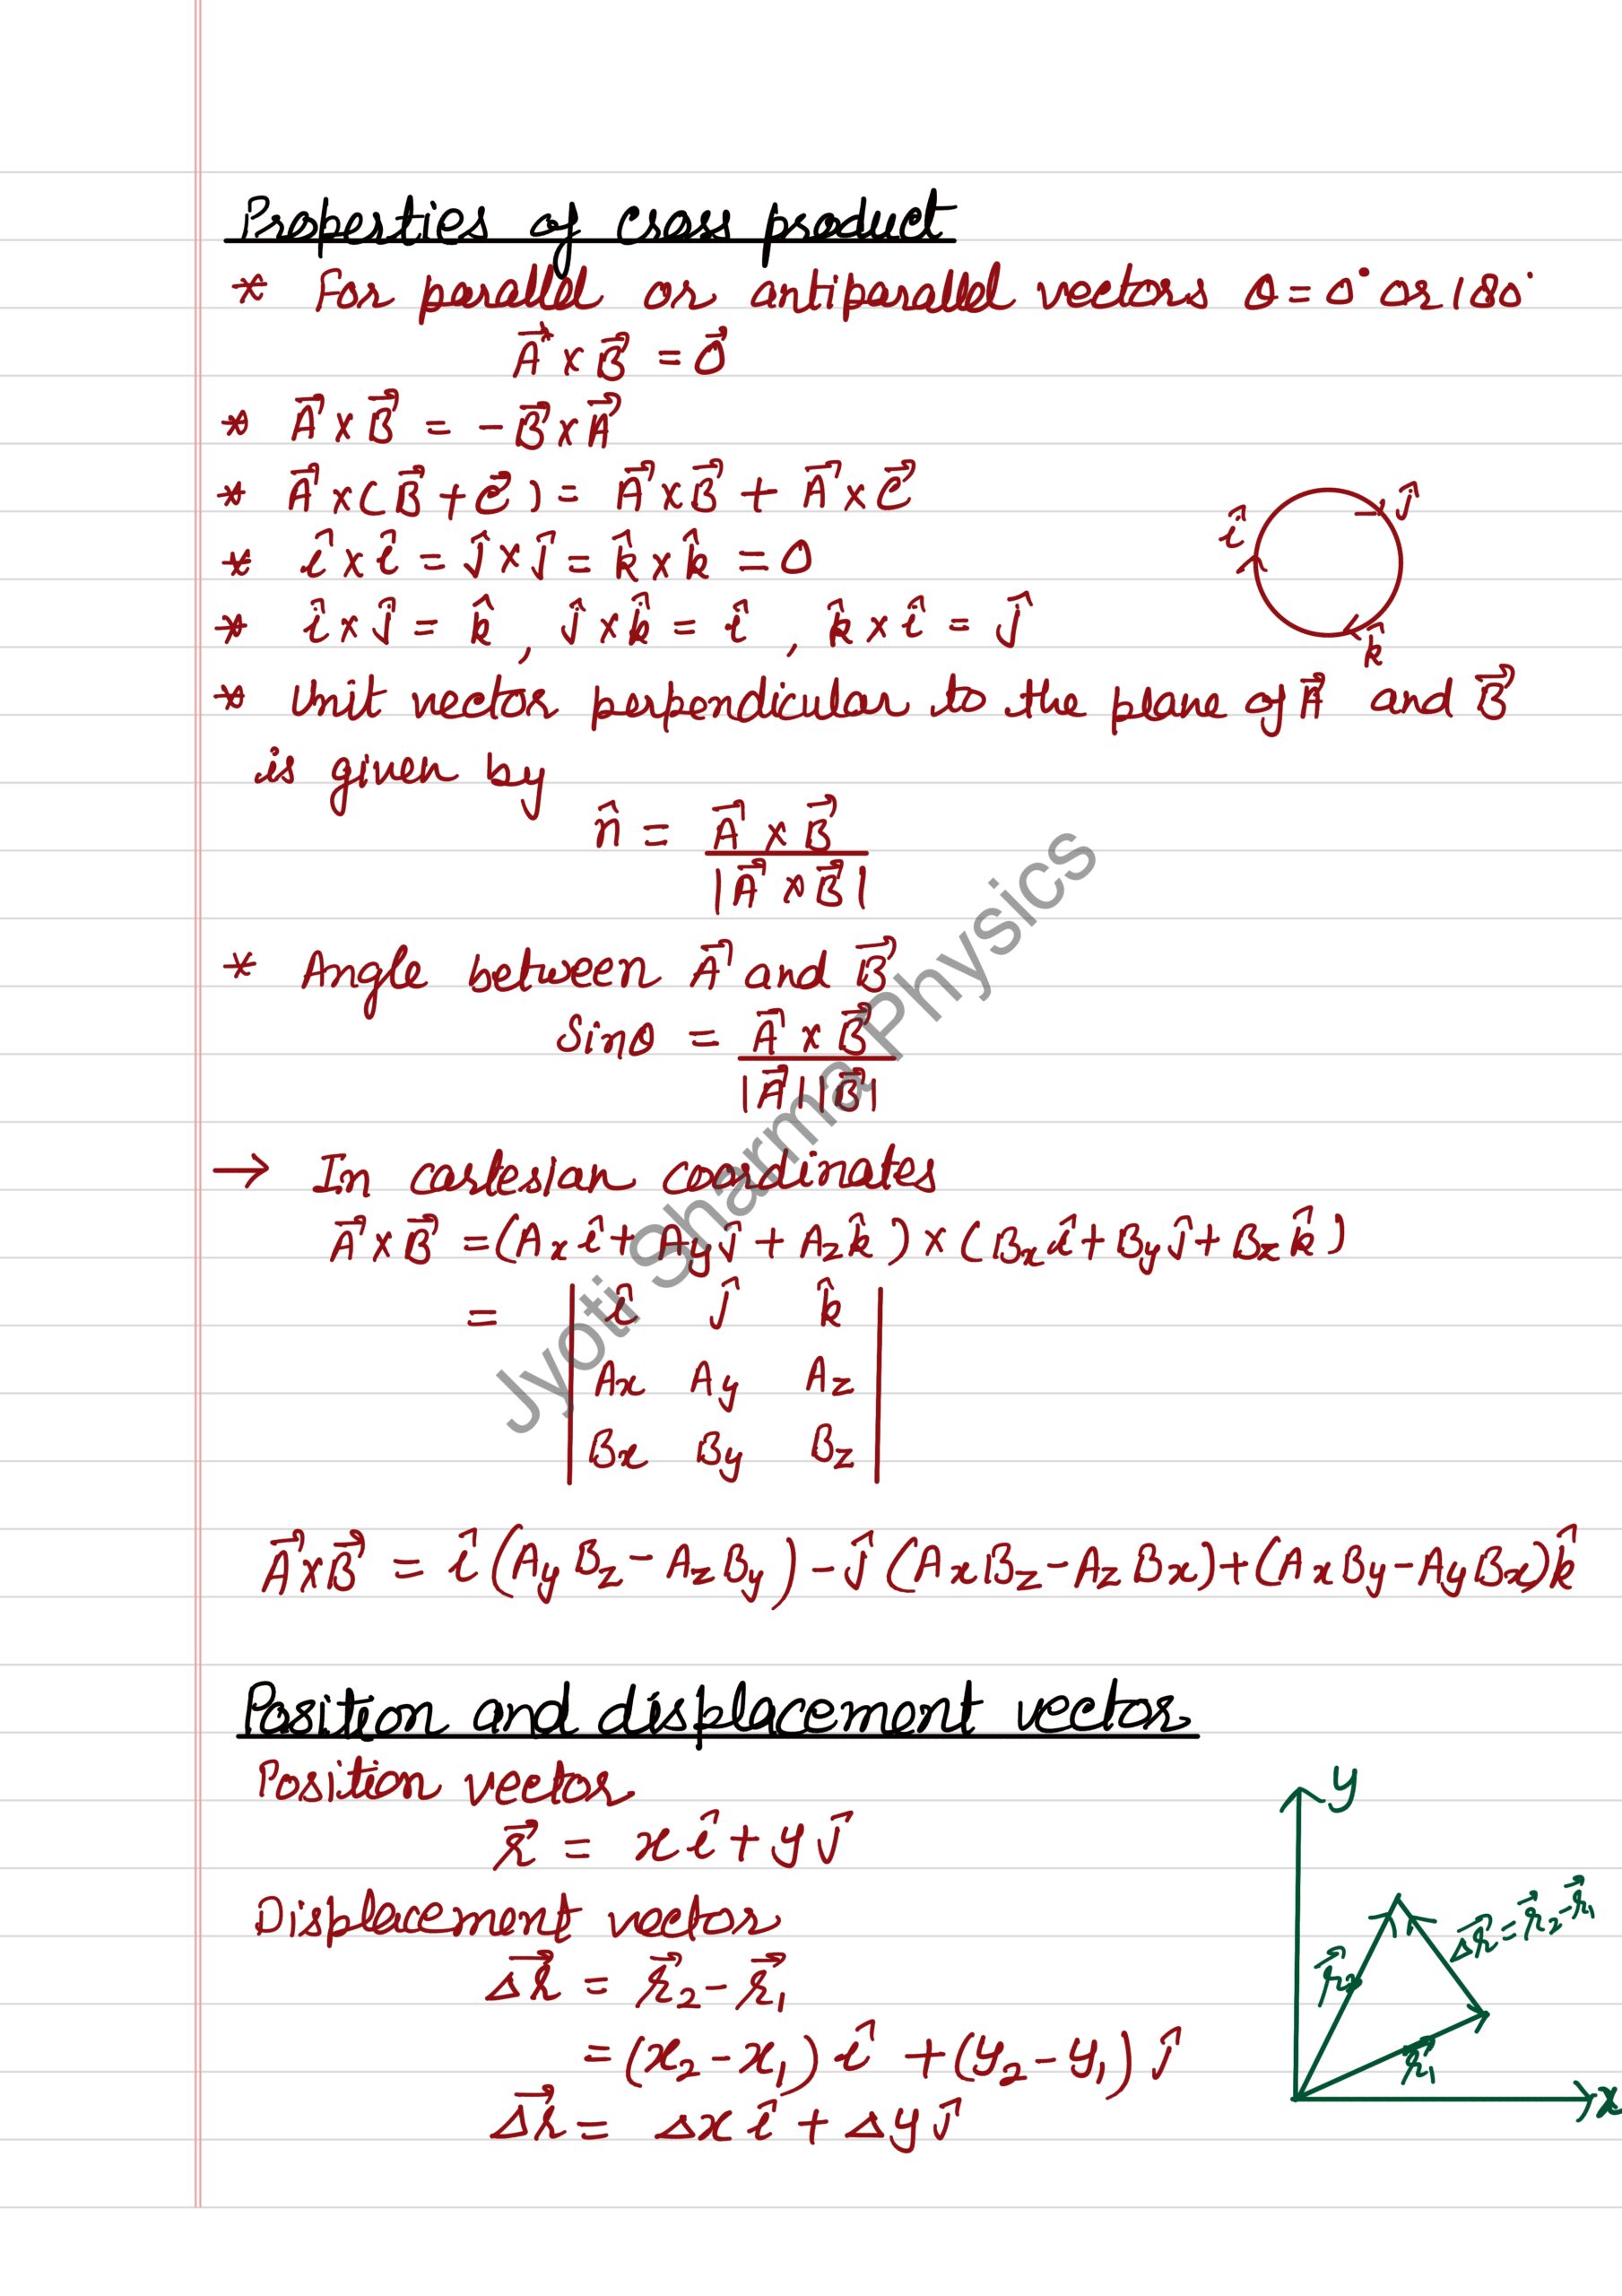 Properties of cross product
* For parallel or antiparallel vectors θ = 0° or 180°
A⃗ × B⃗ = 0⃗
* A⃗ × B⃗ = - B⃗ × A⃗
* A⃗ × (B⃗ + C⃗) = A⃗ × B⃗ + A⃗ × C⃗
* î × î = ĵ × ĵ = k̂ × k̂ = 0
* î × ĵ = k̂, ĵ × k̂ = î, k̂ × î = ĵ
î
ĵ
k̂
* Unit vector perpendicular to the plane of A⃗ and B⃗
is given by
n̂ = A⃗ × B⃗
|A⃗ × B⃗|
* Angle between A⃗ and B⃗
Sinθ = A⃗ × B⃗
|A⃗||B⃗|
→ In cartesian coordinates
A⃗ × B⃗ = (Ax î + Ay ĵ + Az k̂) × (Bx î + By ĵ + Bz k̂)
= | î ĵ k̂ |
Ax Ay Az
Bx By Bz
A⃗ × B⃗ = î (Ay Bz - Az By) - ĵ (Ax Bz - Az Bx) + (Ax By - Ay Bx) k̂
Position and displacement vector
Position vector
r⃗ = x î + y ĵ
Displacement vector
Δr⃗ = r⃗₂ - r⃗₁
= (x₂ - x₁) î + (y₂ - y₁) ĵ
Δr⃗ = Δx î + Δy ĵ
y
Δr⃗ = r⃗₂ - r⃗₁
r⃗₂
r⃗₁
x
Jyoti Sharma Physics